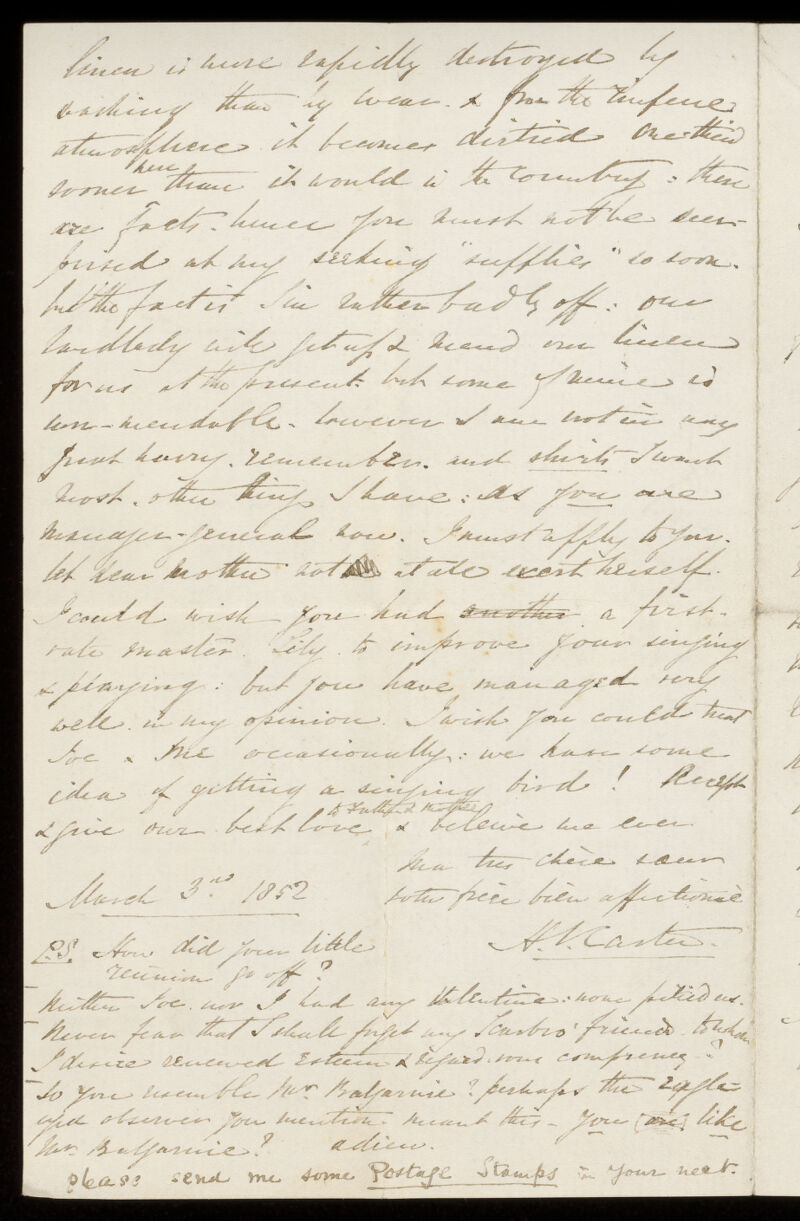 linen is more rapidly destroyed by
washing than by wear. & from the impure
atmosphere it becomes dirtied one third
sooner here than it would in the country: these
are facts. hence you must not be sur-
prised at my seeking "supplies" so soon.
but the fact is I'm rather badly off: our
landlady will get up & mend our linen
for us at the present. but some of mine is
un-mendable. however I am not in any
great hurry. remember. and shirts I want
most. other things I have: As you are
manager-general now. I must apply to you.
let dear mother not at all exert herself.
I could wish you had another a first-
rate master. Lily. to improve your singing
& playing: but you have managed very
well in my opinion. I wish you could treat
Joe & me occasionally: we have some
idea of getting a singing bird! Accept
& give our best love to Father & Mother & beleive me ever
ma tres chère sœur
March 3rd 1852 votre frère bien affectionné
H.V. Carter.
P.S. How did your little
reunion go off?
Neither Joe nor I had any Valentine: none pitied us.
Never fear that I shall forget any Scarbro' friend to whom
I desire renewed esteem & regard. vous comprenez?
So you resemble Mr. Balgarnie? perhaps the eagle-
eyed observer you mention meant this - You (are) like
Mr. Balgarnie? adieu.
please send me some Postage Stamps in your next.